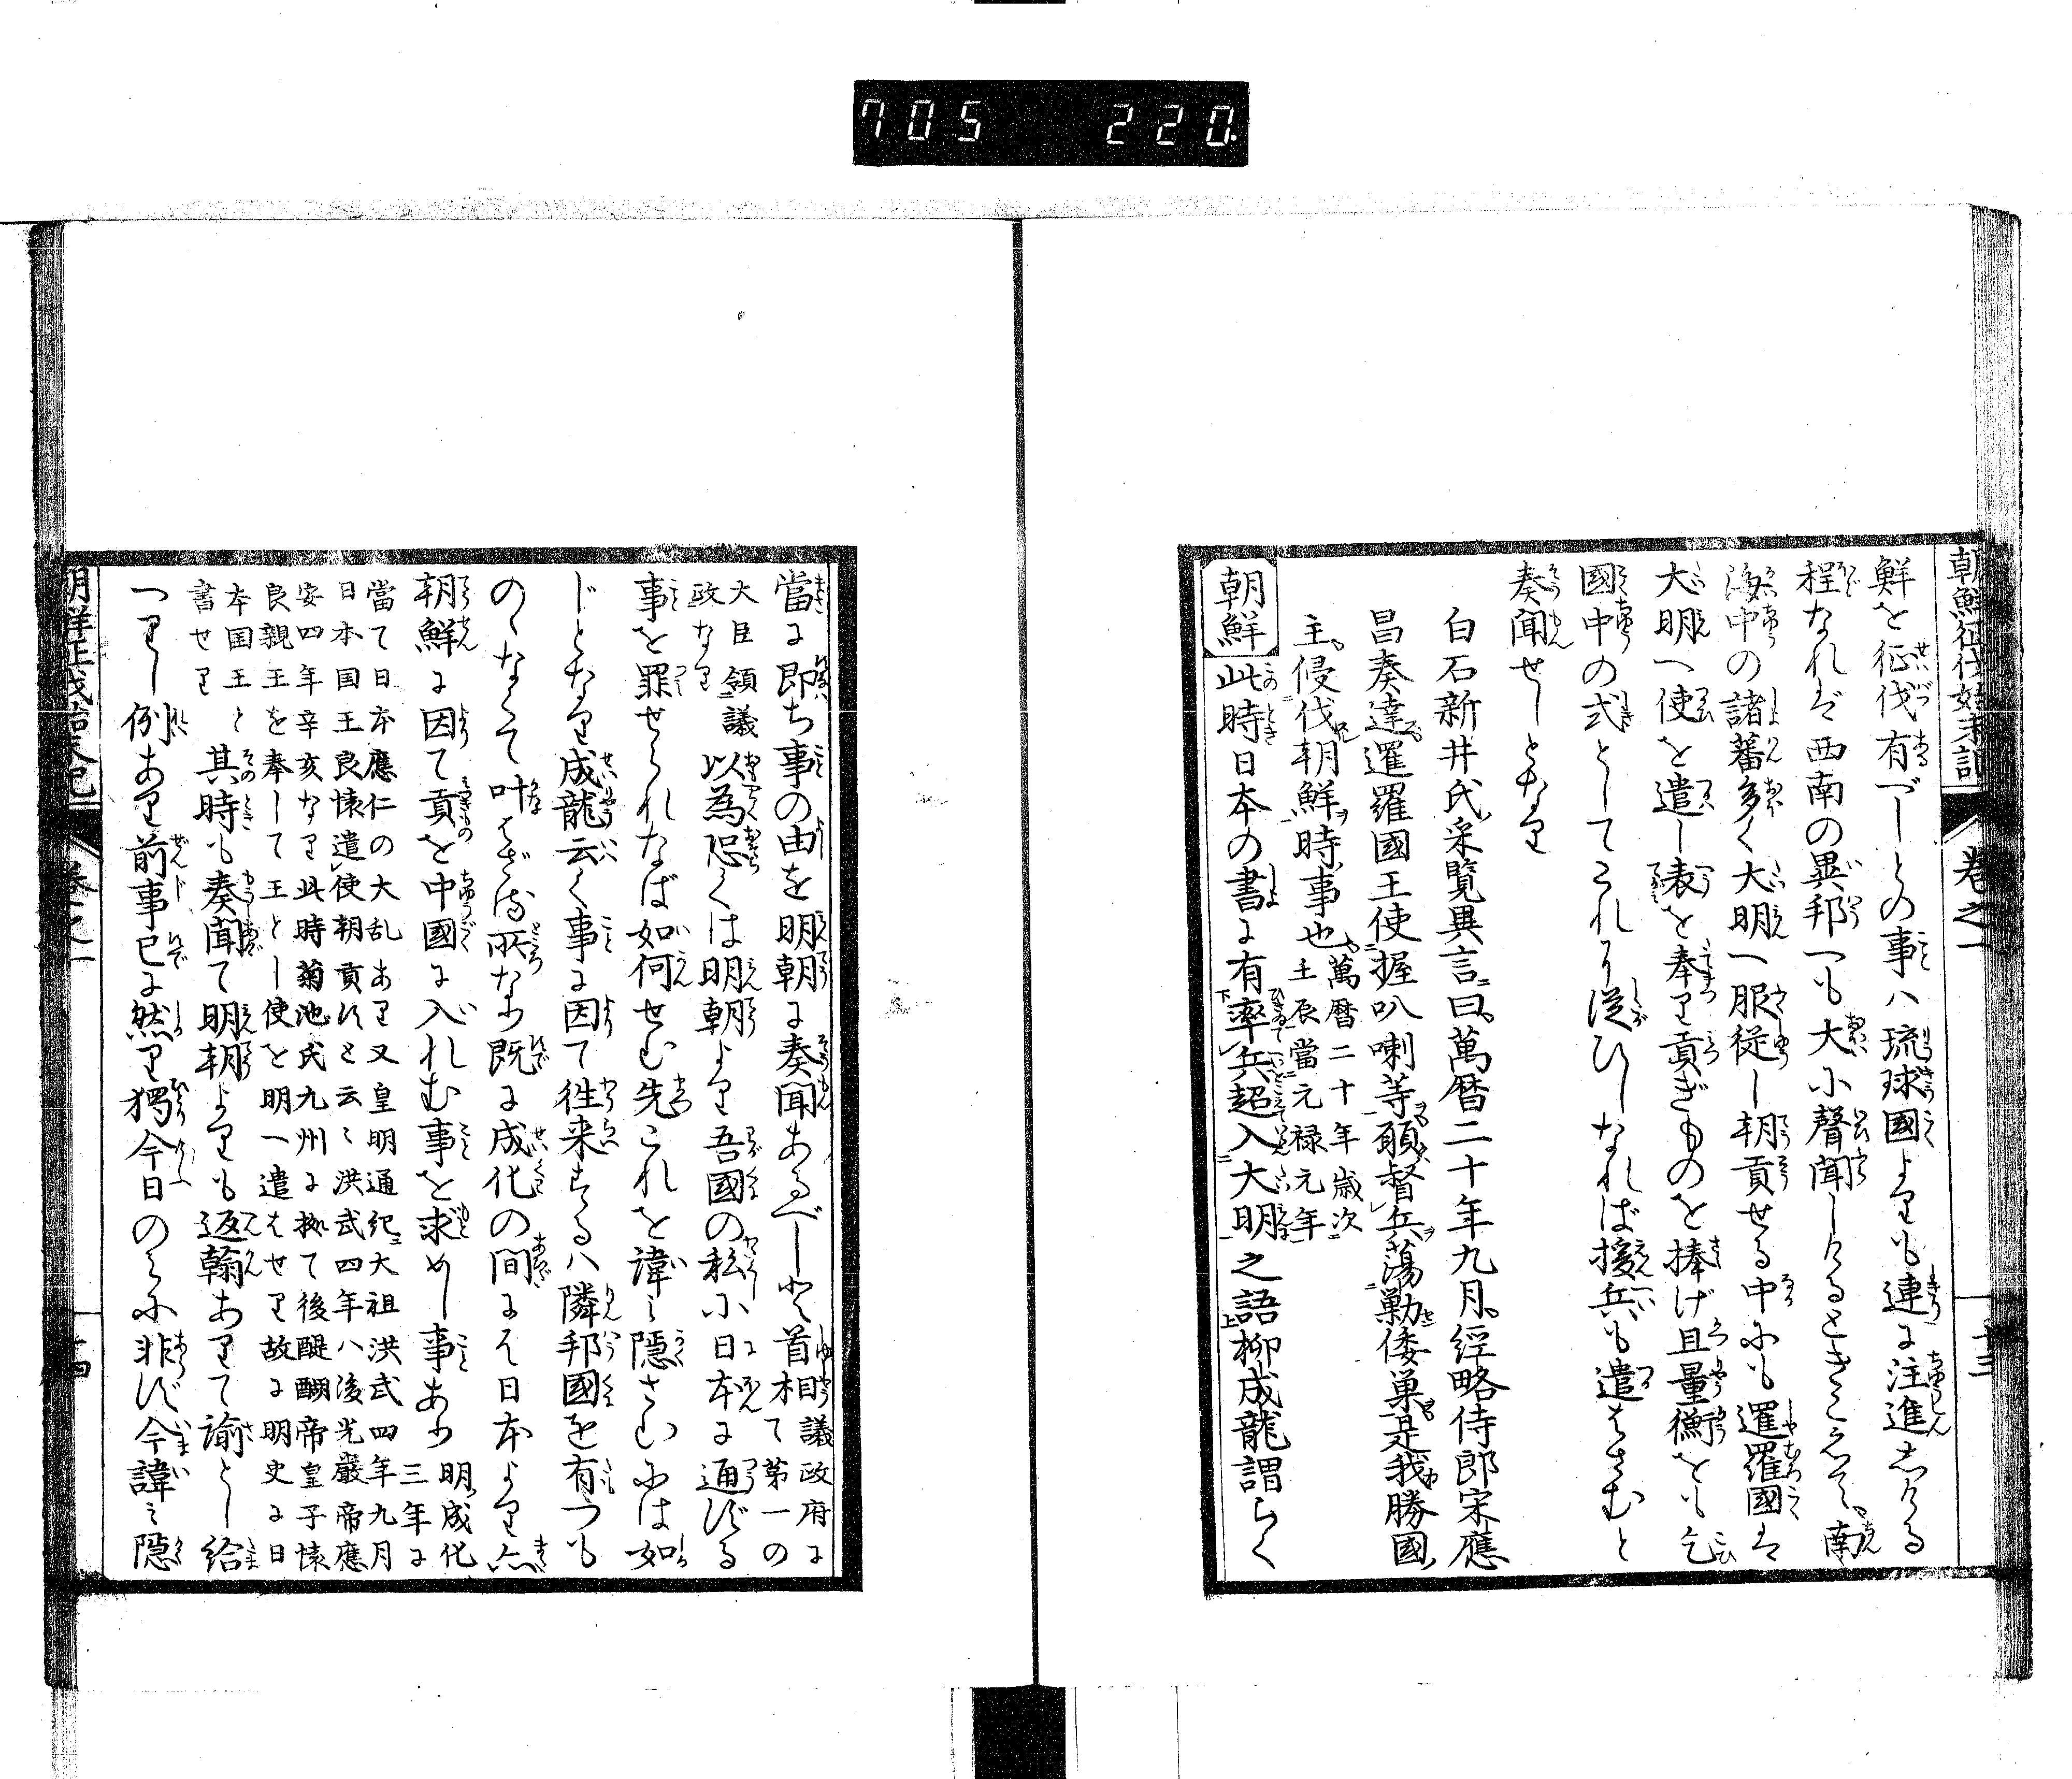 705 220
朝鮮征伐始末記 巻之一 十三
鮮を征伐有べしとの事ハ琉球國よりも連に注進しける
程なれバ西南の異邦一も大小聲聞しけるときこえて南
海中の諸蕃多く大明へ服従し朝貢せる中にも暹羅國ハ
大明へ使を遣し表を奉り貢ぎものを捧げ且量衡をも乞
國中の式としてこれに從ひしなれば援兵も遣ハさむと
奏聞せしとなり
白石新井氏采覧異言曰萬暦二十年九月經略侍郎宋應
昌奏達暹羅國王使握叭喇等願督兵蕩勦倭巣是我勝國
主侵伐朝鮮時事也萬暦二十年歳次
壬辰當元禄元年
朝鮮 此時日本の書に有率兵超入大明之語柳成龍謂らく
當に即ち事の由を明朝に奏聞あるべしと首相議政府に
て第一の
大臣領議
政なり以為恐くは明朝より吾國の私に日本に通ずる
事を罪せられなば如何せむ先これを諱ミ隠さむには如
じとなり成龍云く事に因て徃来するハ隣邦國を有つも
のゝなくて叶ハざる所なり既に成化の間にも日本より亦
朝鮮に因て貢を中國に入れむ事を求めし事あり明成化
三年に
當て日本應仁の大乱あり又皇明通紀大祖洪武四年九月
日本国王良懐遣使朝貢すと云々洪武四年ハ後光嚴帝應
安四年辛亥なり此時菊池氏九州に拠て後醍醐帝皇子懐
良親王を奉して王とし使を明へ遣ハせり故に明史に日
本国王と
書せり其時も奏聞て明朝よりも返翰ありて諭とし給
つりし例あり前事已に然り獨今日のミに非ず今諱ミ隠
朝鮮征伐始末記 巻之一 十四